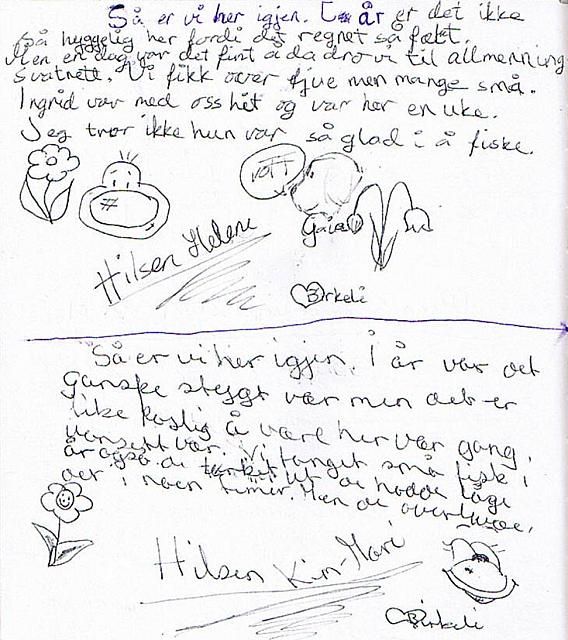 Så er vi her igjen. I år er det ikke
så hyggelig her fordi det regnet så fælt.
Men en dag var det fint å da dro vi til allmenning
svatnett. Vi fikk over tjue men mange små.
Ingrid var med oss hit og var her en uke.
Jeg tror ikke hun var så glad i å fiske.
VOFF
Gaia
Hilsen Helene
Birkeli
Så er vi her igjen. I år var det
ganske stygt vær men det er
like koslig å være her vær gang,
uansett vær. Vi fanget små fisk i
år også de
der i noen timer. Men de overlevde.
Hilsen Kim-Mari
Birkeli